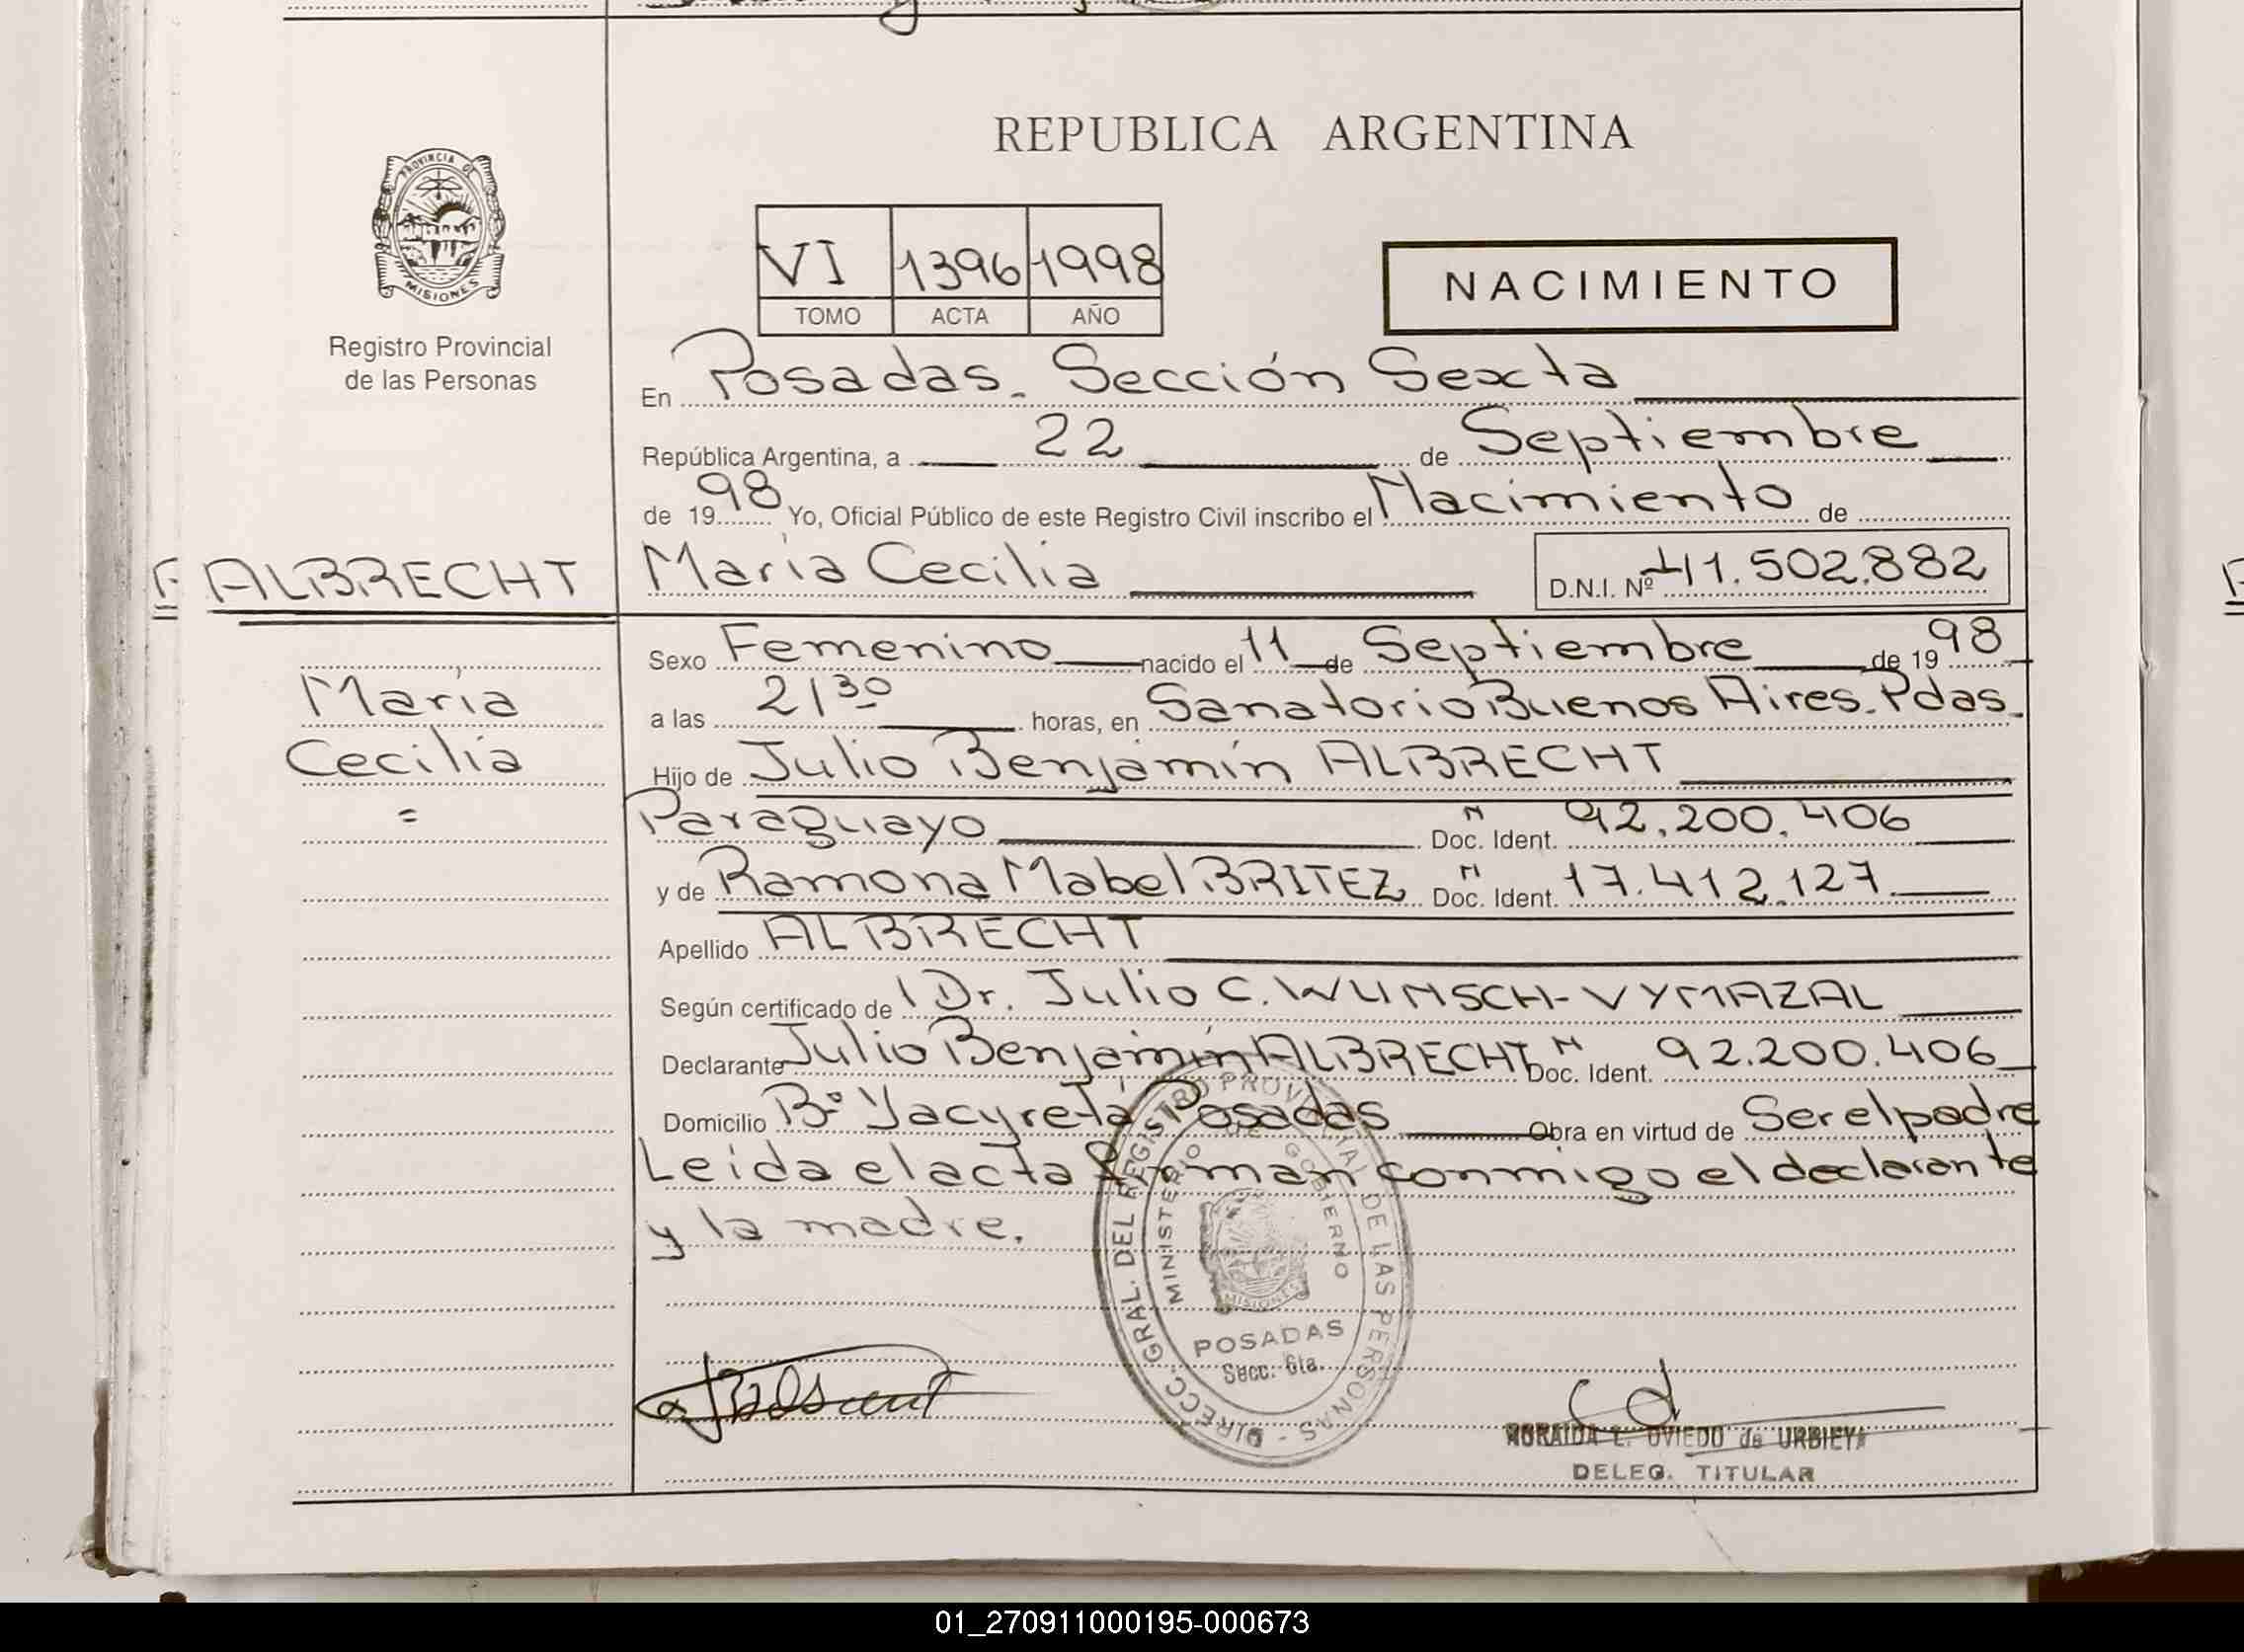 REPUBLICA ARGENTINA
PROVINCIA DE
MISIONES
Registro Provincial
de las Personas
VI 1396 1998
TOMO ACTA AÑO
NACIMIENTO
En Posadas. Sección Sexta
República Argentina, a 22 de Septiembre
de 1998 Yo, Oficial Público de este Registro Civil inscribo el Nacimiento de
ALBRECHT María Cecilia D.N.I. Nº 41.502.882
Sexo Femenino nacido el 11 de Septiembre de 1998
María
a las 21 30 horas, en Sanatorio Buenos Aires. Pdas.
Cecilia
Hijo de Julio Benjamín ALBRECHT
=
Paraguayo N Doc. Ident. 92.200.406
y de Ramona Mabel BRITEZ N Doc. Ident. 17.412.127.
Apellido ALBRECHT
Según certificado de Dr. Julio C. WUNSCH-VYMAZAL
Declarante Julio Benjamín ALBRECHT N Doc. Ident. 92.200.406
Domicilio Bº Yacyretá, Posadas Obra en virtud de Ser el padre
Leída el acta firman conmigo el declarante
y la madre.
DIRECC. GRAL. DEL REGISTRO PROVINCIAL DE LAS PERSONAS
MINISTERIO DE GOBIERNO
MISIONES
POSADAS
Secc. 6ta.
L. OVIEDO de URBIETA
DELEG. TITULAR
01_270911000195-000673